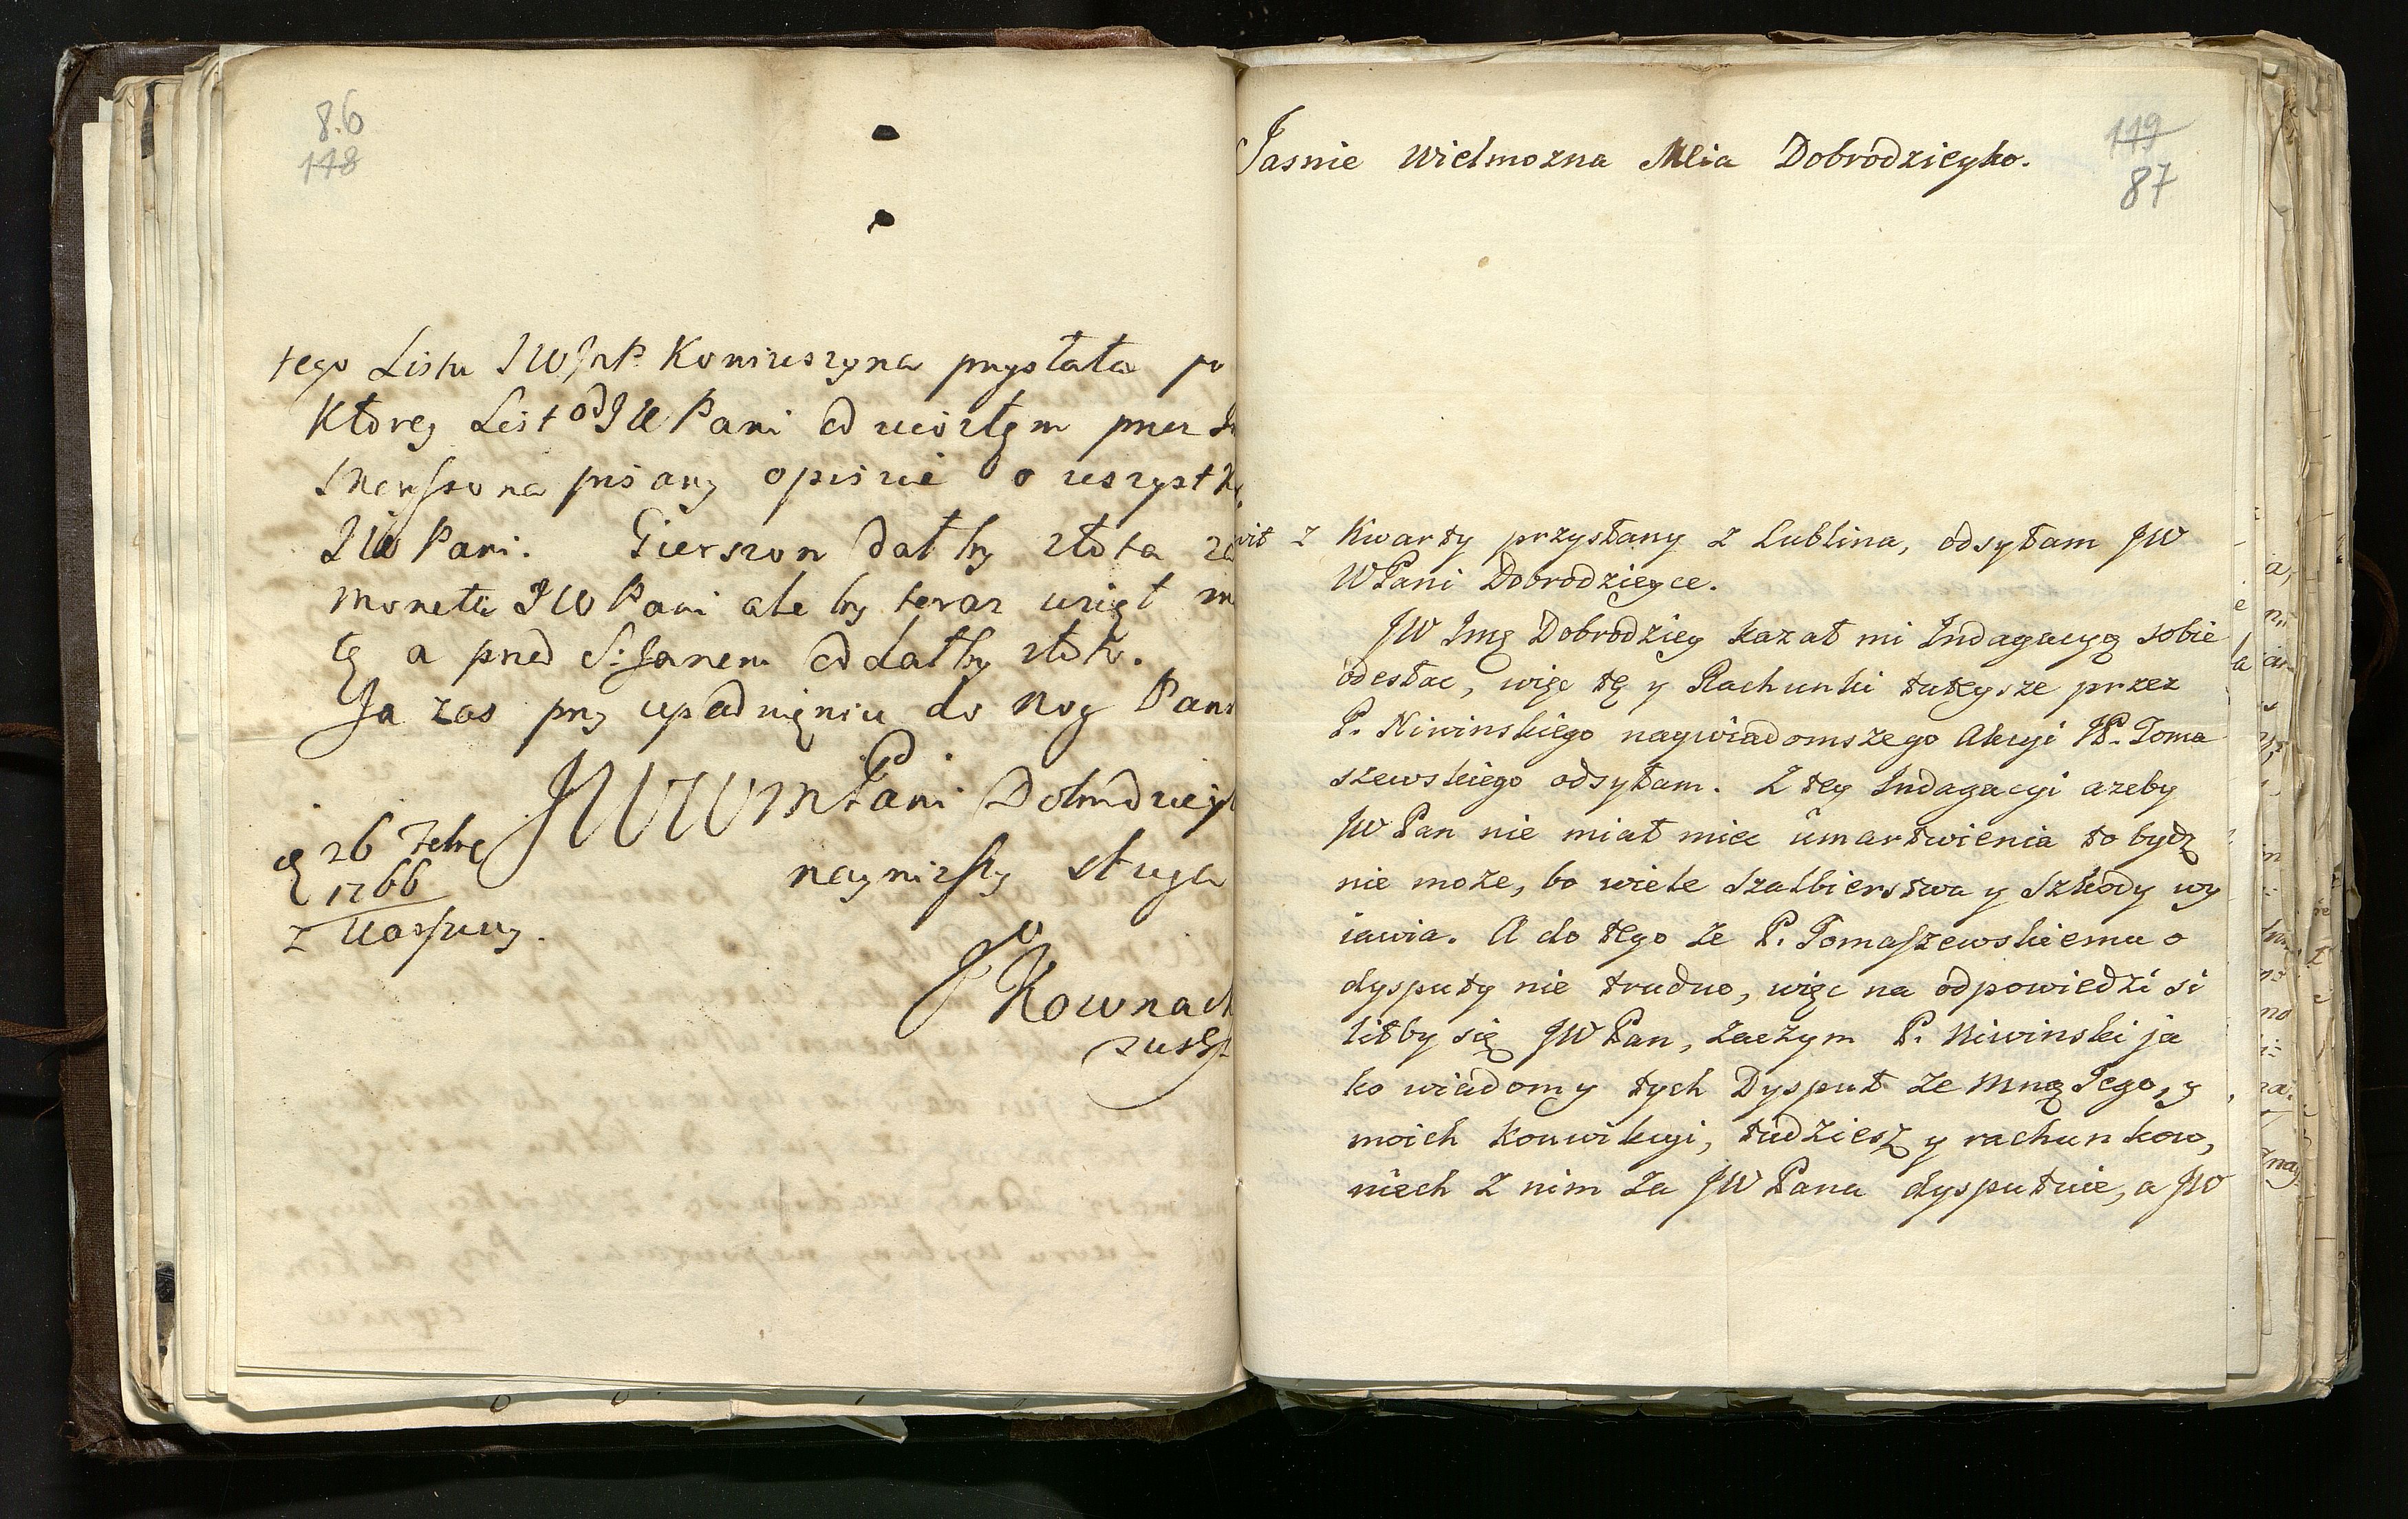 8.6
118
tego Listu JWJmP. Koniuszyna przysłała po
Ktorey List od JWPani odwiozłem przez
pisany opisze o wszystk
JWPani. Gierszon dałby złota za
monetę JWPani ale by teraz wziął m
tę a przed S: Janem oddałby złoto.
Ja zas przy upadnięniu do nog Pans
JWWMPani Dobrodzieyk
nayniższy sługa
d 26 Febr
1766
z
J Kownack
119
87
Jasnie Wielmozna Mcia Dobrodzieyko.
wit z Kwarty przysłany z Lublina, odsyłam JW
WPani Dobrodzieyce.
JW Jmę Dobrodziey kazał mi Indagacyą sobie
odesłac, więc tę y Rachunki tuteysze przez
P. Niwinskiego naywiadomszego Akcyi JP. Toma
szewskiego odsyłam. Z tey Indagacyi azeby
JW Pan nie miał miec umartwienia to bydz
nie moze, bo wiele szalbierstwa y szkody wy
iawia. A do tego ze P. Tomaszewskiemu o
dysputy nie trudno, więc na odpowiedzi si
liłby się JW Pan, zaczym P. Niwinski ja
ko wiadomy tych Dysput ze mną Jego, y
moich konwikcyi, tudziesz y rachunkow,
niech z nim za JW Pana dysputuie, a JW